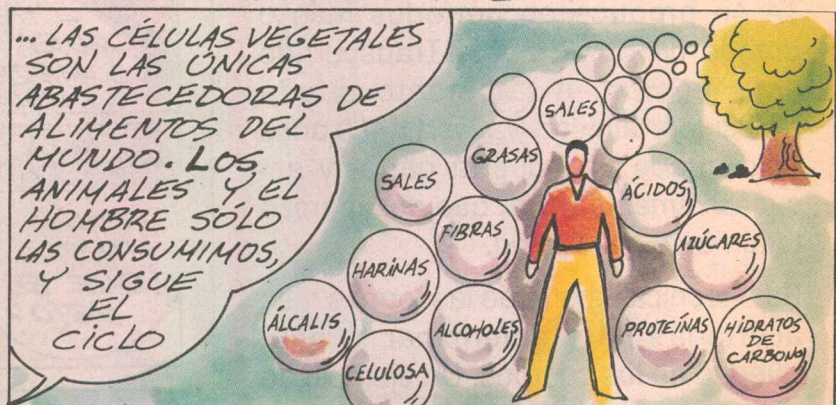 ... LAS CÉLULAS VEGETALES
SON LAS ÚNICAS
ABASTECEDORAS DE
ALIMENTOS DEL
MUNDO. LOS
ANIMALES Y EL
HOMBRE SÓLO
LAS CONSUMIMOS,
Y SIGUE
EL
CICLO
SALES
GRASAS
SALES
ÁCIDOS
FIBRAS
AZÚCARES
HARINAS
ÁLCALIS
ALCOHOLES
PROTEÍNAS
HIDRATOS
DE
CARBONO
CELULOSA